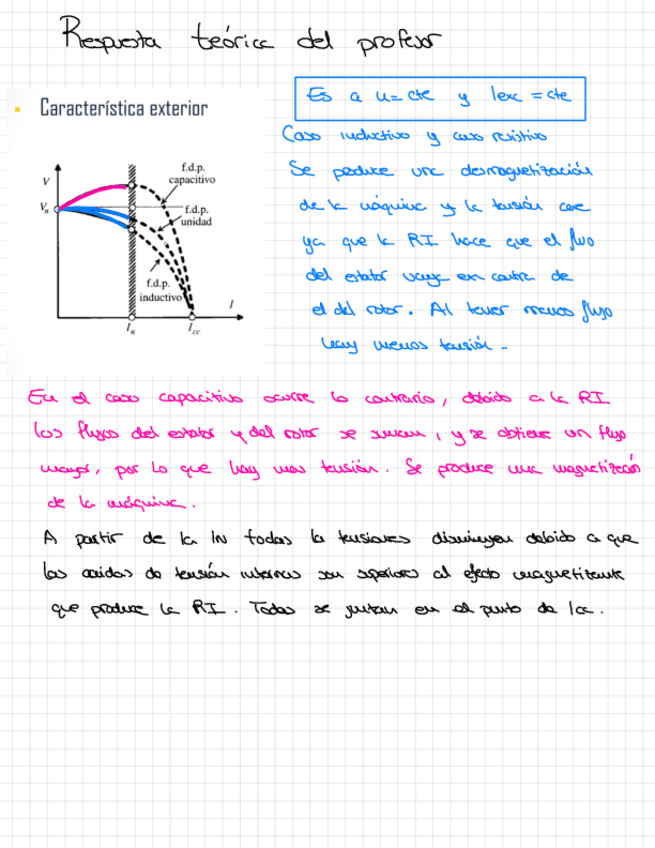 Respuesta teórica del profesor
Característica exterior
Es a u=cte y Iexc = cte
Caso inductivo y caso resistivo
Se produce una desmagnetización
de la máquina y la tensión cae
ya que la RI hace que el flujo
del estator vaya en contra de
el del rotor. Al tener menos flujo
hay menos tensión.
V
Vn
f.d.p.
capacitivo
f.d.p.
unidad
f.d.p.
inductivo
I
In
Icc
En el caso capacitivo ocurre lo contrario, debido a la RI
los flujos del estator y del rotor se suman, y se obtiene un flujo
mayor, por lo que hay mas tensión. Se produce una magnetización
de la máquina.
A partir de la IN todas la tensiones disminuyen debido a que
las caidas de tensión internas son superiores al efecto magnetizante
que produce la RI. Todas se juntan en el punto de Icc.